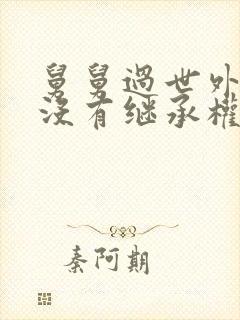 舅舅過世外
没有继承權
秦阿期